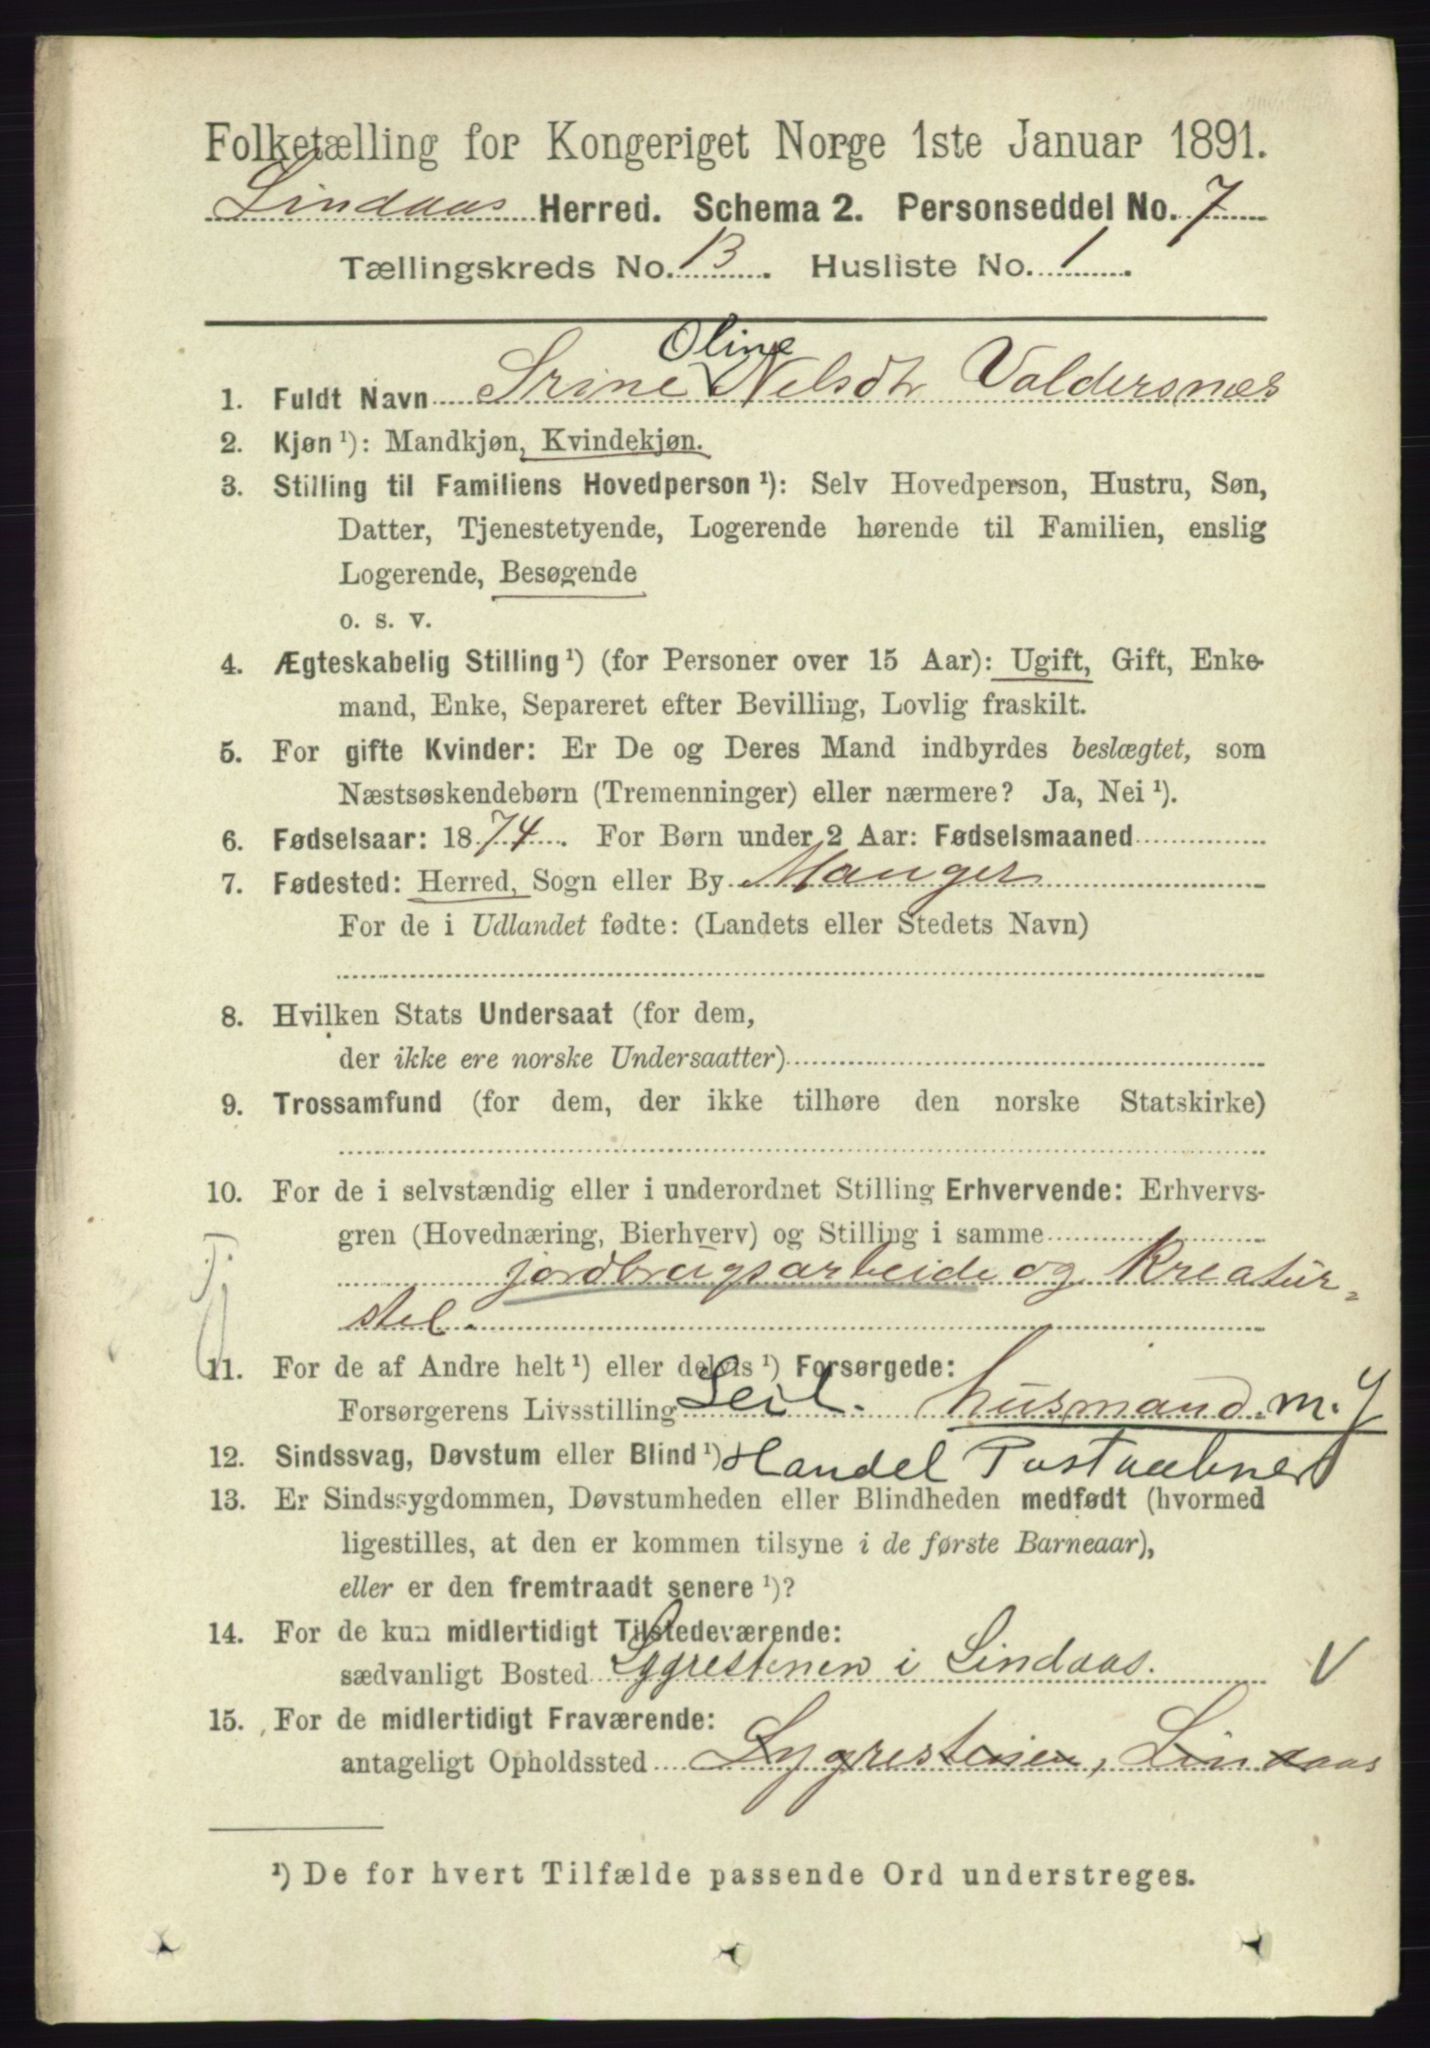 Folketælling for Kongeriget Norge 1ste Januar 1891.
Lindaas Herred. Schema 2. Personseddel No. 7
Tællingskreds No. 13. Husliste No. 1.
Oline
1. Fuldt Navn Srine Nelsdtr Valdersnæs
2. Kjøn ¹): Mandkjøn, Kvindekjøn.
3. Stilling til Familiens Hovedperson ¹): Selv Hovedperson, Hustru, Søn,
Datter, Tjenestetyende, Logerende hørende til Familien, enslig
Logerende, Besøgende
o. s. v.
4. Ægteskabelig Stilling ¹) (for Personer over 15 Aar): Ugift, Gift, Enke-
mand, Enke, Separeret efter Bevilling, Lovlig fraskilt.
5. For gifte Kvinder: Er De og Deres Mand indbyrdes beslægtet, som
Næstsøskendebørn (Tremenninger) eller nærmere? Ja, Nei ¹).
6. Fødselsaar: 1874. For Børn under 2 Aar: Fødselsmaaned
7. Fødested: Herred, Sogn eller By Manger
For de i Udlandet fødte: (Landets eller Stedets Navn)
8. Hvilken Stats Undersaat (for dem,
der ikke ere norske Undersaatter)
9. Trossamfund (for dem, der ikke tilhøre den norske Statskirke)
10. For de i selvstændig eller i underordnet Stilling Erhvervende: Erhvervs-
gren (Hovednæring, Bierhverv) og Stilling i samme
jordbrugsarbeide og Kreatur-
stel.
11. For de af Andre helt ¹) eller delvis ¹) Forsørgede:
Forsørgerens Livsstilling Leil. husmand m. J
12. Sindssvag, Døvstum eller Blind ¹) Handel Postaabneri
13. Er Sindssygdommen, Døvstumheden eller Blindheden medfødt (hvormed
ligestilles, at den er kommen tilsyne i de første Barneaar),
eller er den fremtraadt senere ¹)?
14. For de kun midlertidigt Tilstedeværende:
sædvanligt Bosted Lygrestenen i Lindaas. V
15. For de midlertidigt Fraværende:
antageligt Opholdssted Lygrestenen, Lindaas
¹) De for hvert Tilfælde passende Ord understreges.